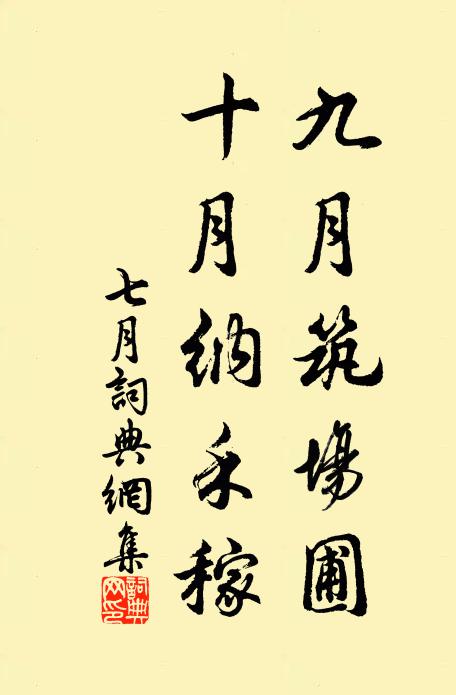 九月筑場圃
十月納禾稼
七月詞典網集
詞典網印